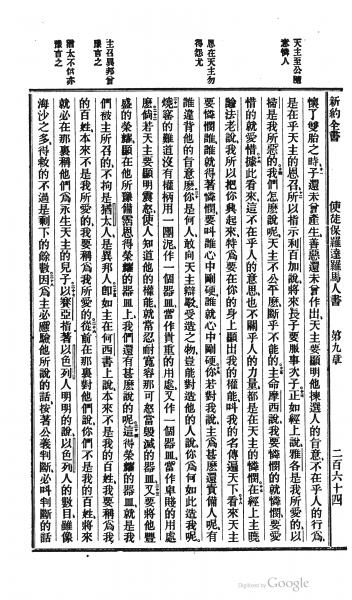 新約全書 使徒保羅達羅馬人書 第九章 二百六十四
懷了雙胎之時子還未曾產生善惡還未曾作出天主要顯明他揀選人的旨意不在乎人的行為
是在乎天主的恩召所以指示利百加說將來長子要服事次子正如經上說雅各是我所愛的以
天主至公隨意憐人
掃是我所惡的我們怎麽說呢天主不公平麽斷乎不能的主命摩西說我要憐憫的就憐憫要愛
惜的就愛惜據此看來這不在乎人的意思也不關乎人的力量都是在天主的憐憫在經上主曉
諭法老說我所以把你興起來特為要在你的身上顯出我的權能叫我的名傳遍天下看來天主
要憐憫誰誰就得著憐憫要叫誰心中剛硬誰就心中剛硬你若對我說主為甚麽還責備人呢有
恩在天主勿得怨尤
誰違背他的旨意麽你是何人敢向天主辯駁受造之物豈能對造他的人說你為何如此造我呢
燒窰的難道沒有權柄用一團泥作一個器皿當作貴重的用處又作一個器皿當作卑賤的用處
麽倘若天主要顯明震怒使人知道他的權能就常忍耐寬容那可怒當毀滅的器皿又要將他豐
盛的榮耀顯在他所豫備蒙恩得榮耀的器皿上我們還有甚麽說的呢這得榮耀的器皿就是我
主召異邦曾豫言之
們被主所召的不拘是猶太人是異邦人卽如主在何西書上說本來不是我的百姓我要稱為我
的百姓本來不是我所愛的我要稱為我所愛的從前在那裏對他們說你們不是我的百姓將來
猶太不信亦豫言之
就必在那裏稱他們為永生天主的兒子以賽亞指著以色列人明明的說以色列人的數目雖像
海沙之多得救的不過是剩下的餘數因為主必應驗他所說的話按著公義判斷必叫判斷的話
Digitized by Google